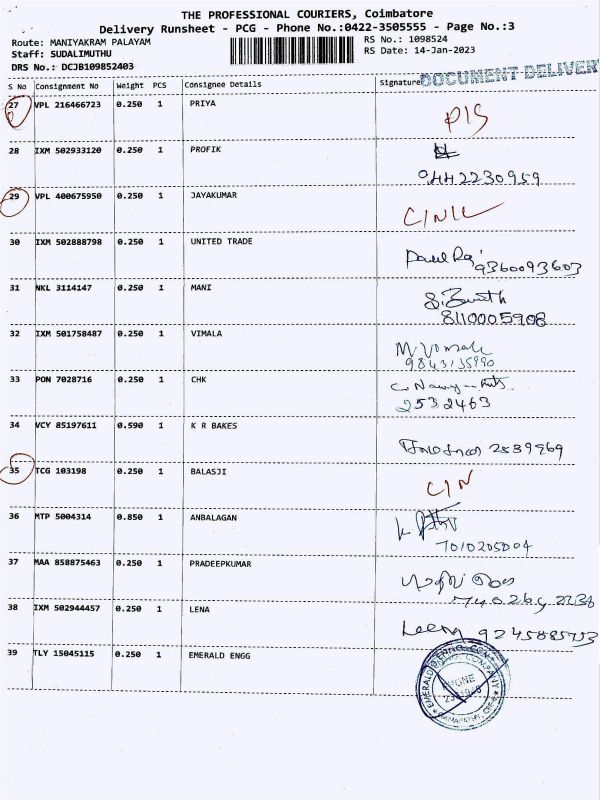 THE PROFESSIONAL COURIERS, Coimbatore
Delivery Runsheet - PCG - Phone No.:0422-3505555 - Page No.:3
Route: MANIYAKRAM PALAYAM RS No.: 1098524
Staff: SUDALIMUTHU RS Date: 14-Jan-2023
DRS No.: DCJB109852403
DOCUMENT DELIVER
S No Consignment No Weight PCS Consignee Details Signature
27 VPL 216466723 0.250 1 PRIYA
28 IXM 502933120 0.250 1 PROFIK
9442230959
29 VPL 400675950 0.250 1 JAYAKUMAR
30 IXM 502888798 0.250 1 UNITED TRADE
9360093603
31 NKL 3114147 0.250 1 MANI
8110005908
32 IXM 501758487 0.250 1 VIMALA
33 PON 7028716 0.250 1 CHK
2532463
34 VCY 85197611 0.590 1 K R BAKES
2539969
35 TCG 103198 0.250 1 BALASJI
36 MTP 5004314 0.850 1 ANBALAGAN
37 MAA 858875463 0.250 1 PRADEEPKUMAR
38 IXM 502944457 0.250 1 LENA
39 TLY 15045115 0.250 1 EMERALD ENGG
PHONE